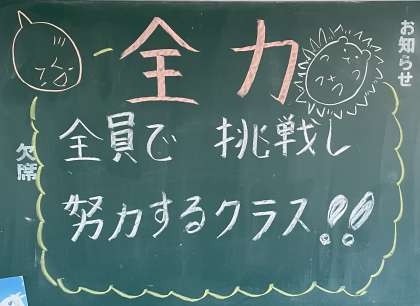 全力
お知らせ
全員で 挑戦し
欠席
努力するクラス!!